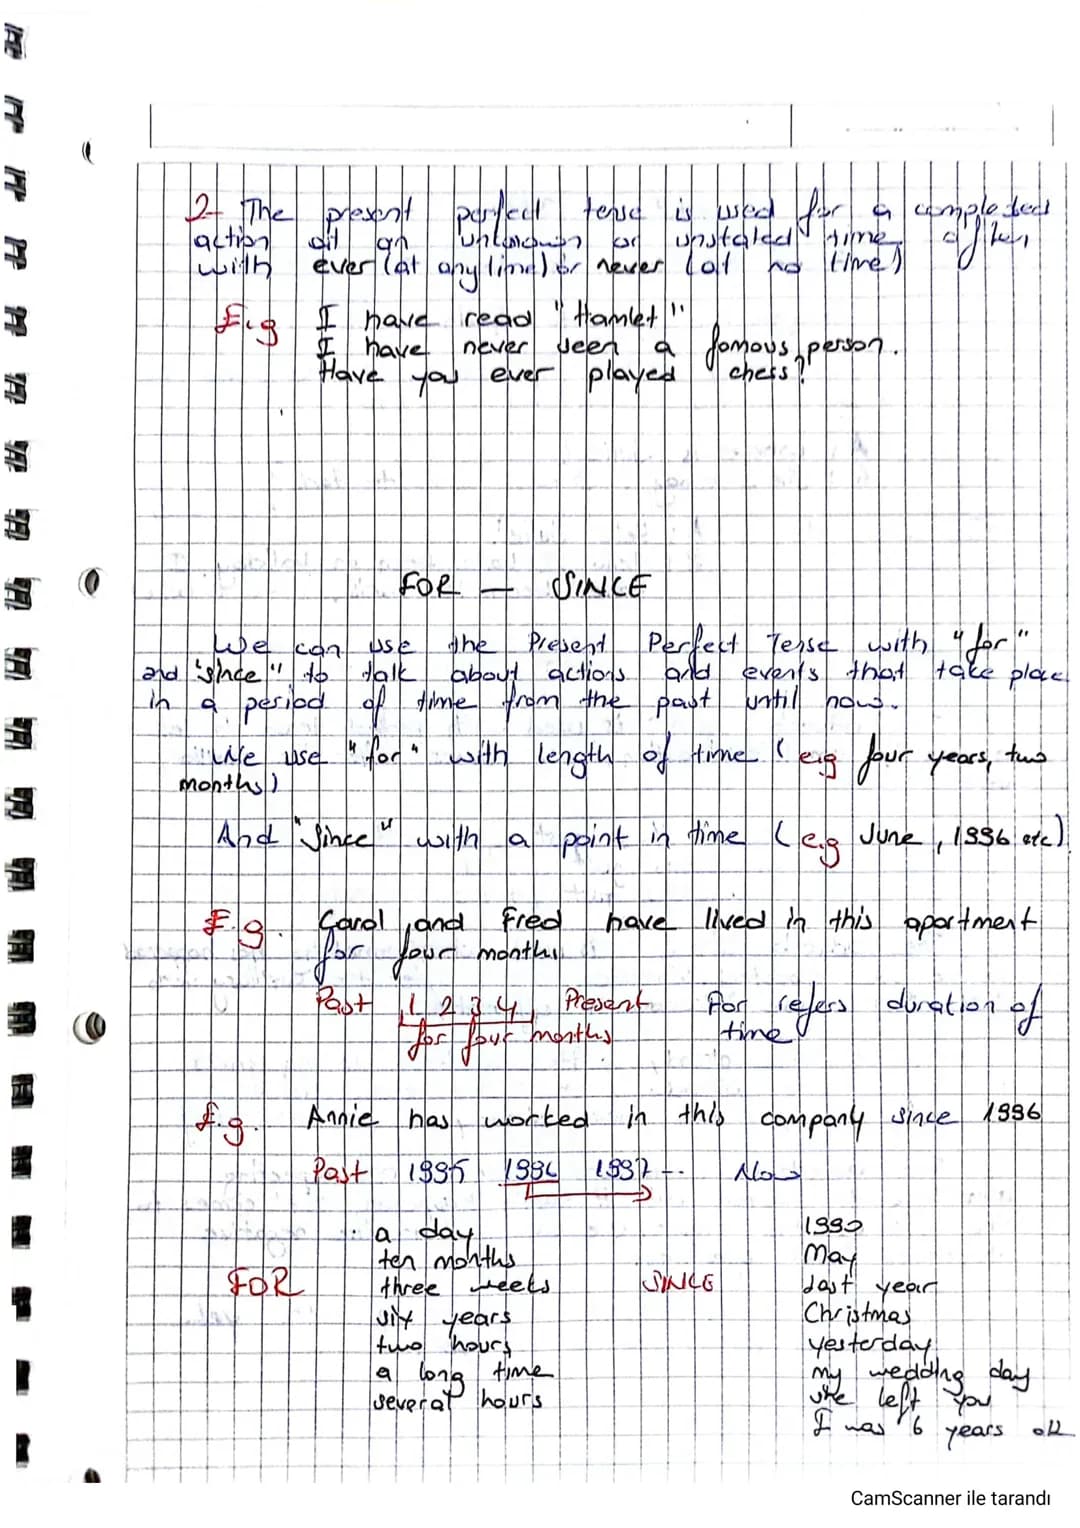 2- The present perfect tense is used for a completed
action at an unknown or unstated time often
with ever (at any time) or never (at no time)
E.g I have read "Hamlet"
I have never seen a famous person.
Have you ever played chess?
FOR — SINCE
We can use the Present Perfect Tense with "for"
and "since" to talk about actions and events that take place
in a period of time from the past until now.
We use "for" with length of time (e.g four years, two
months)
And "Since" with a point in time (e.g June, 1996 etc)
E.g. Carol and Fred have lived in this apartment
for four months
Past 1 2 3 4 Present For refers duration of
for four months time
E.g. Annie has worked in this company since 1996
Past 1995 1996 1997 -. Now
a day 1990
ten months May
FOR three weeks SINCE last year
six years Christmas
two hours yesterday
a long time my wedding day
several hours she left you
I was 6 years old
CamScanner ile tarandı